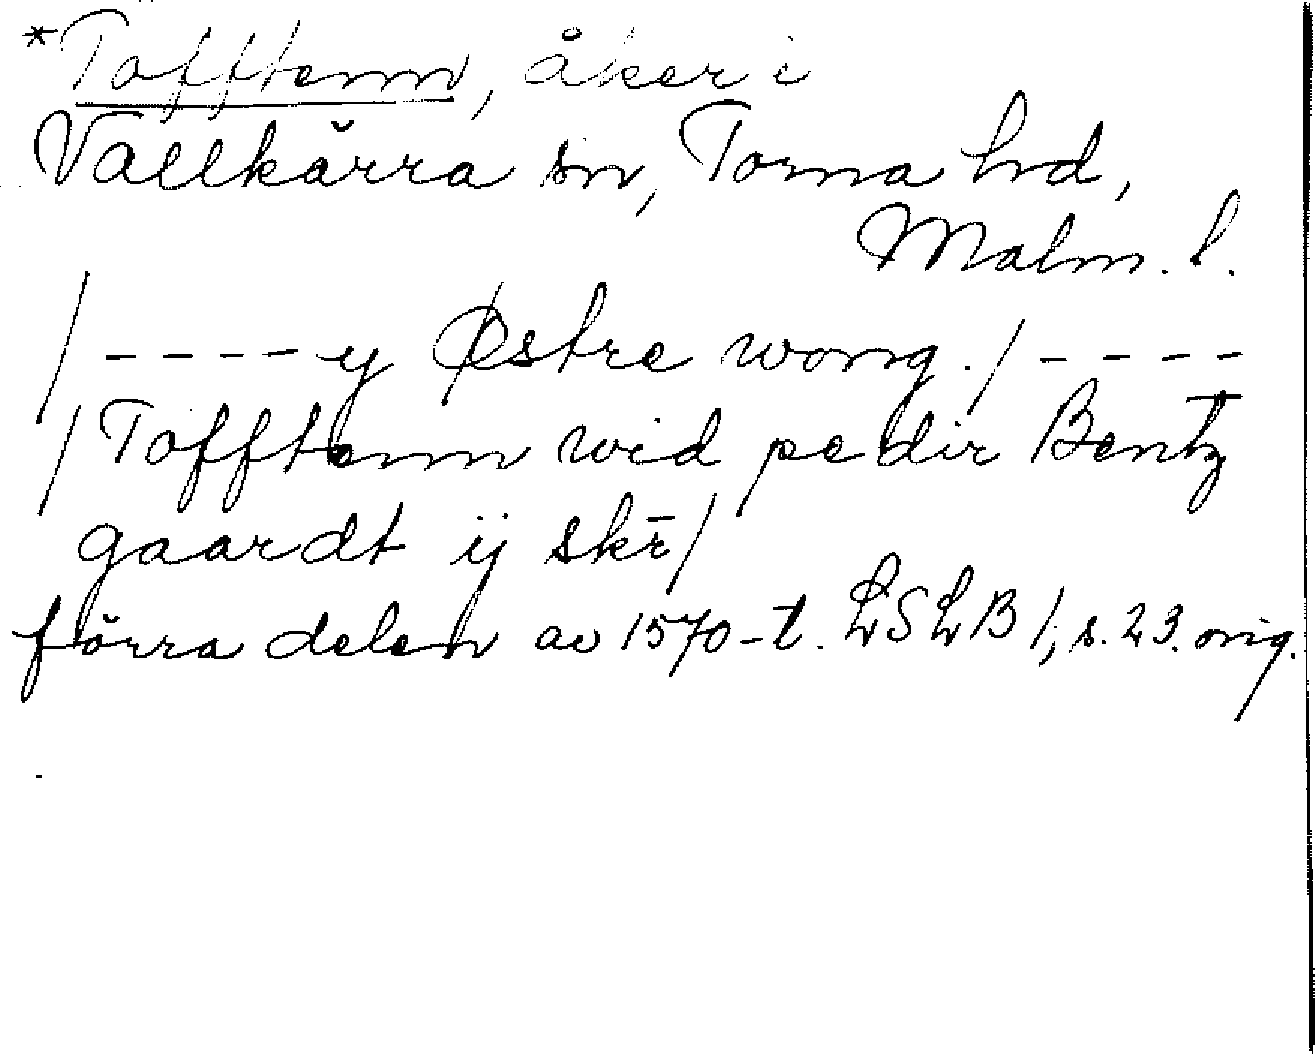 *Tofftenn, åker i
Vallkärra sn, Torna hd,
Malm. l.
/ - - - - y Østre wong. / - - - -
/ Tofftenn wid pedir Bentz
gaardt ij skē /
förra delen av 1570-t. LSLB 1, s. 23. orig.